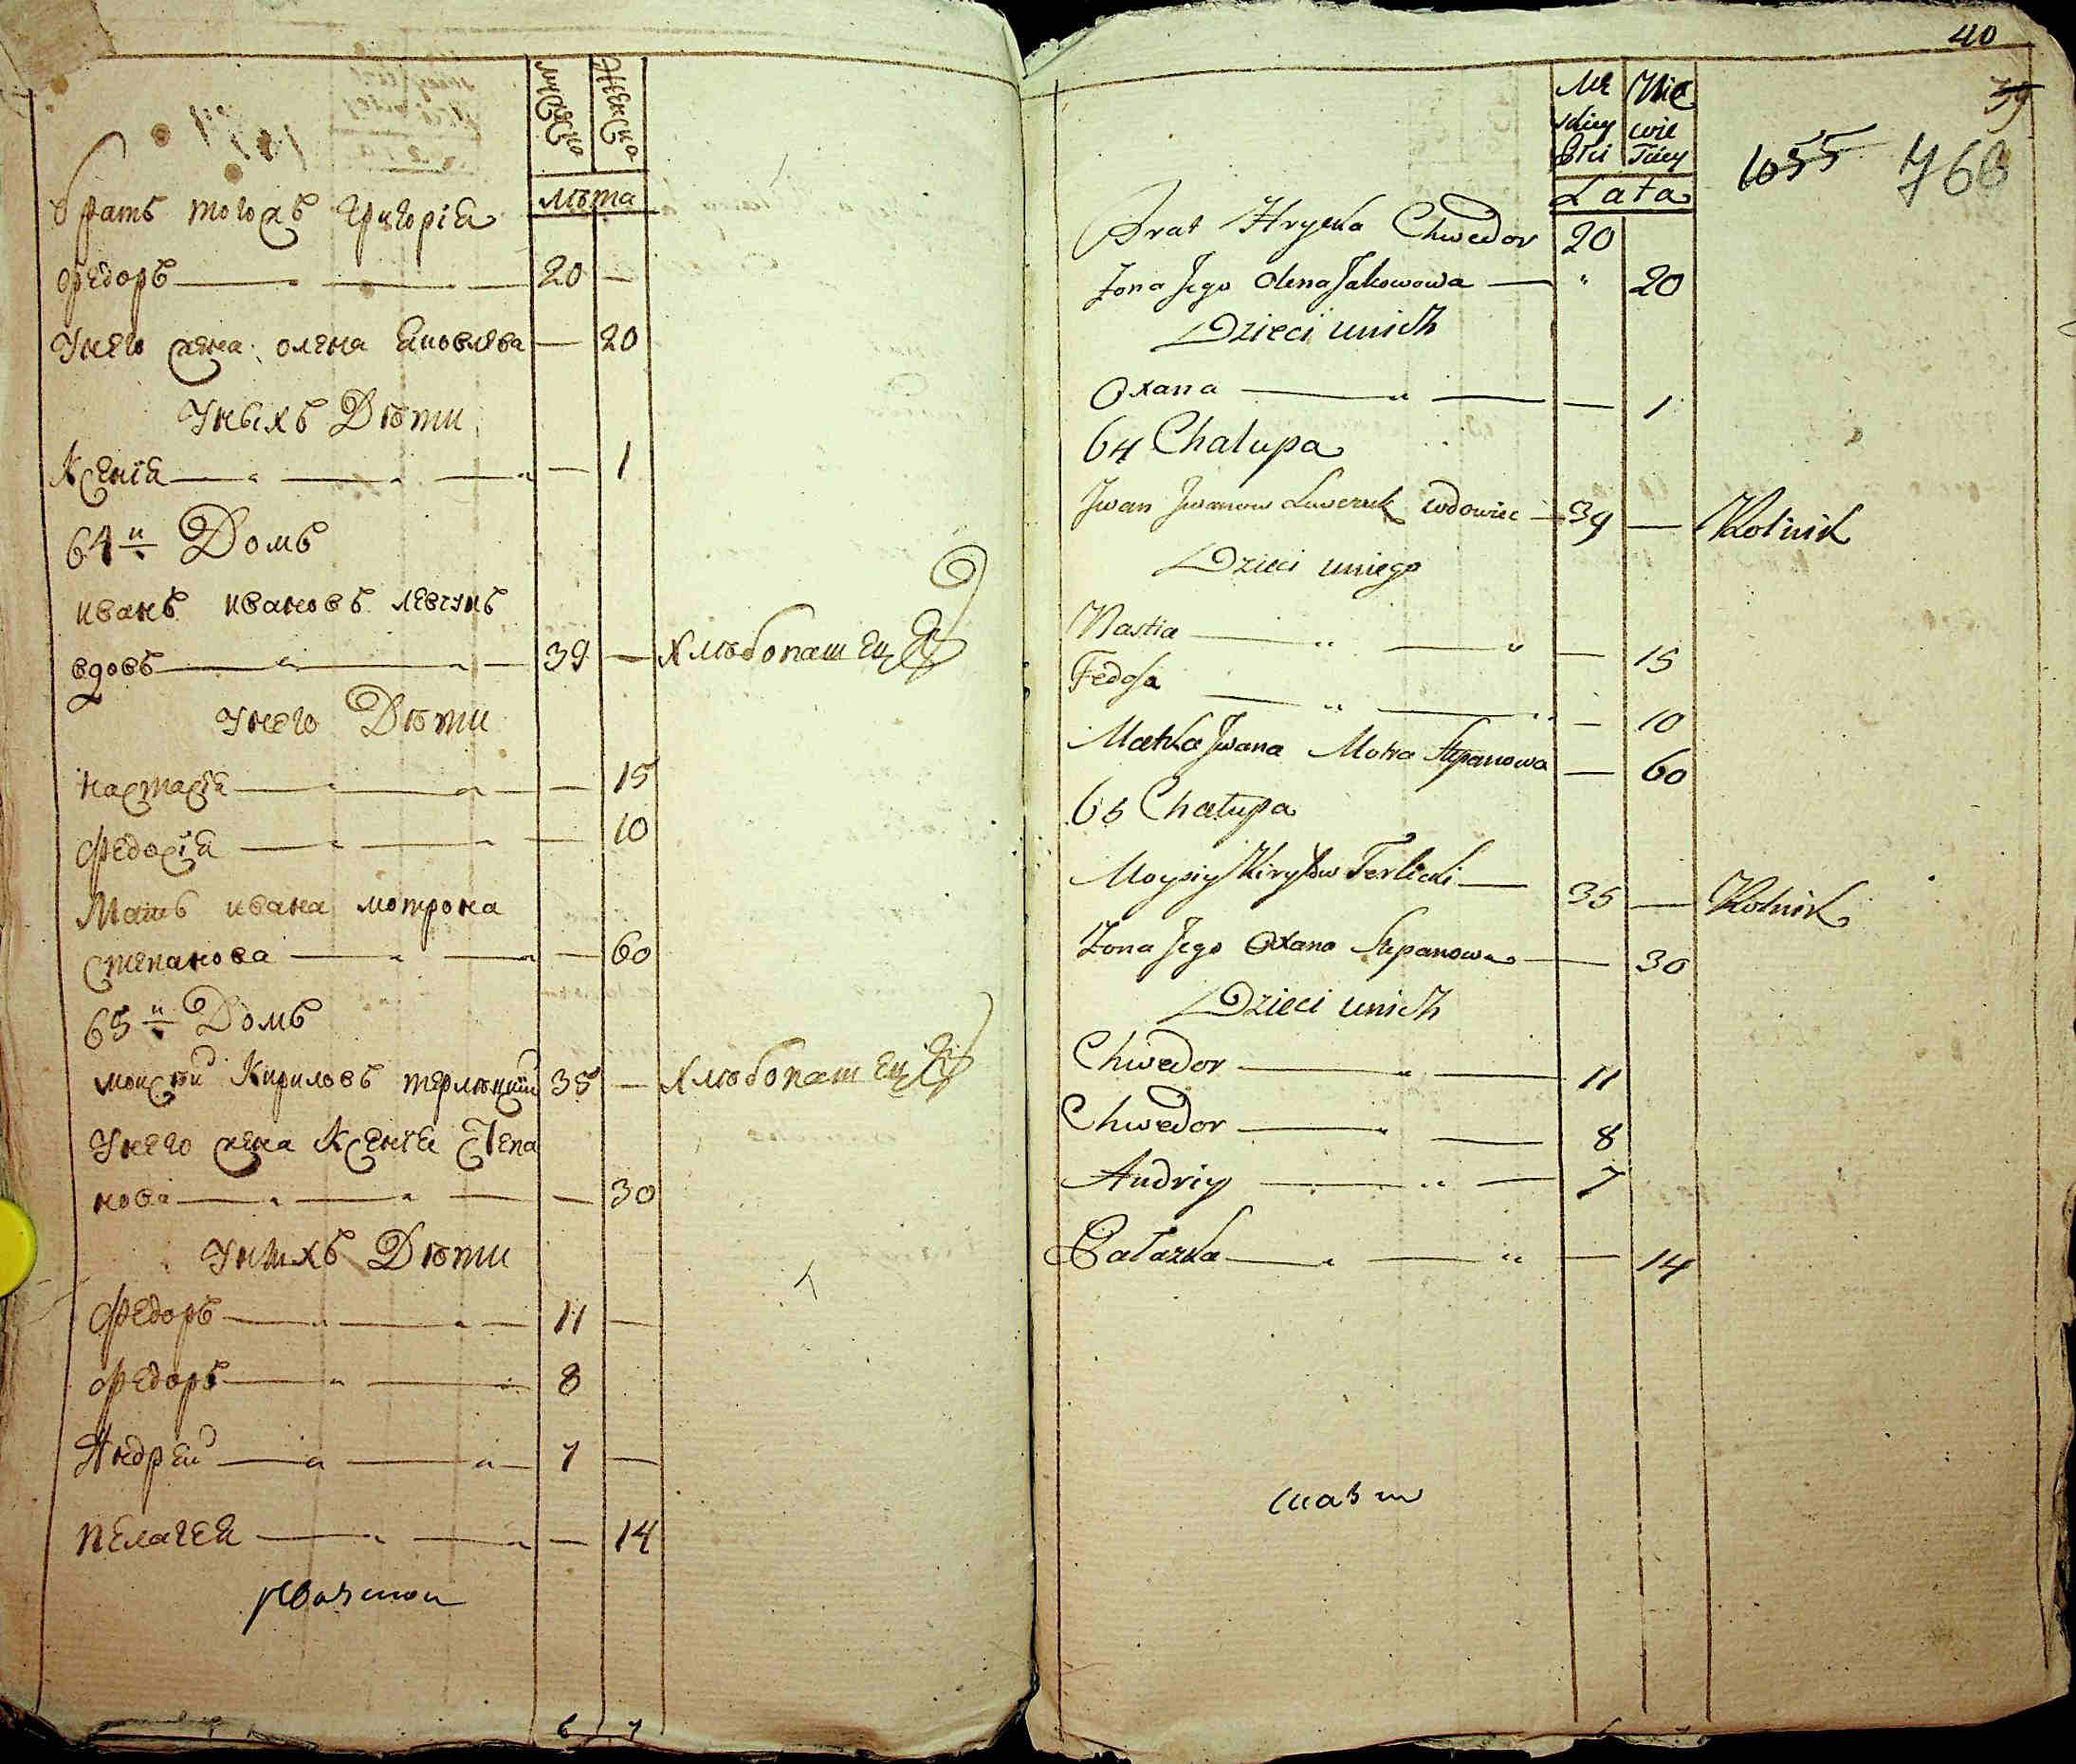 мужеска
женска
лѣта
братъ тогожъ григорїя
федоръ — 20 —
Унего жена олена яковлева — 20
Уныхъ Дѣти
Ксенїя — — 1
64й Домъ
иванъ ивановъ левчукъ
вдовъ — 39 — хлѣбопашецъ
Унего Дѣти
настасїя — — 15
федосїя — — 10
Мать ивана мотрона
степанова — — 60
65й Домъ
моисѣй Кириловъ терлѣцкий 35 — хлѣбопашецъ
Унего жена Ксенїя Степа
нова — — 30
Унихъ Дѣти
федоръ — 11 —
федоръ — 8
Андрей — 7 —
пелагея — — 14
6 7
40
39
Mę Nie
skiey wie
Płci sciey
1055 760
Lata
Brat Hryćka Chwedor 20
Zona Jego Olena Jakowowa — " 20
Dzieci unich
Oxana — — 1
64 Chalupa
Jwan Jwanow Lewczuk wdowiec — 39 — Rolnik
Dzieci uniego
Nastia — — 15
Fedosa — — 10
Matka Jwana Motra Stepanowa — 60
65 Chalupa
Moysiy Kiryłow Terlicki — 35 — Rolnik
Zona Jego Oxana Stepanowa — 30
Dzieci unich
Chwedor — 11
Chwedor — 8
Andriy — 7
Palazka — — 14